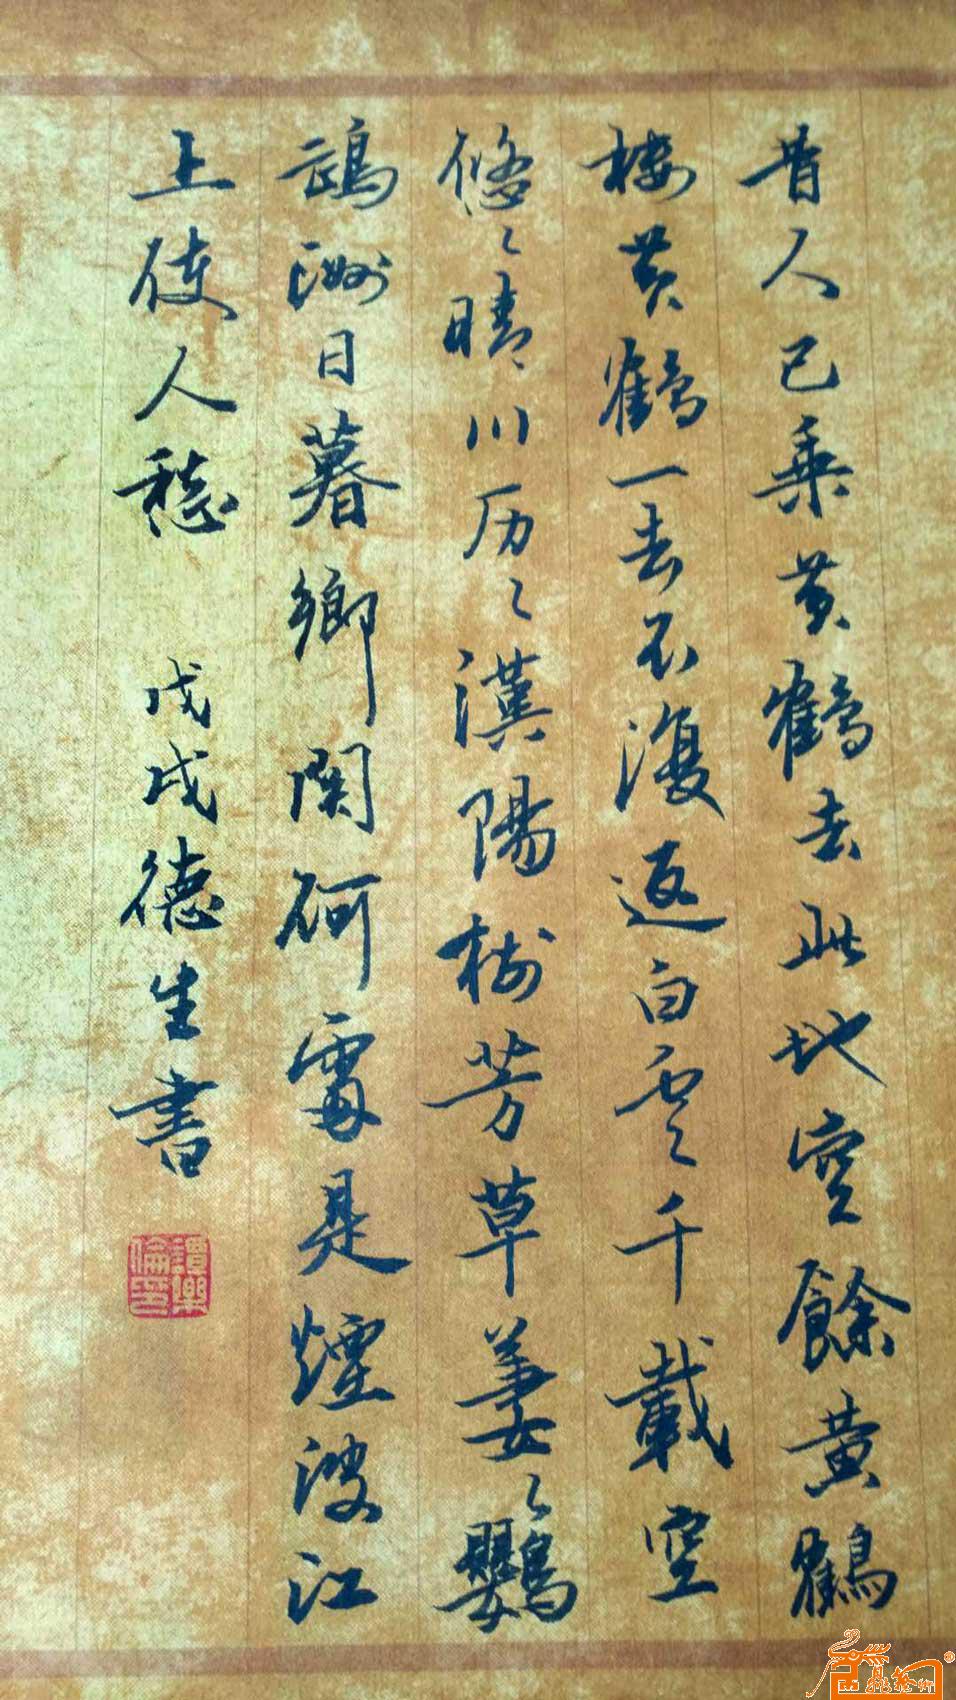 昔人已乗黄鹤去此地空餘黄鶴
楼黄鶴一去不復返白雲千載空
悠々晴川历々漢陽樹芳草萋々鹦
鵡洲日暮鄉関何處是煙波江
上使人愁 戊戌德生書
譚樂倫印